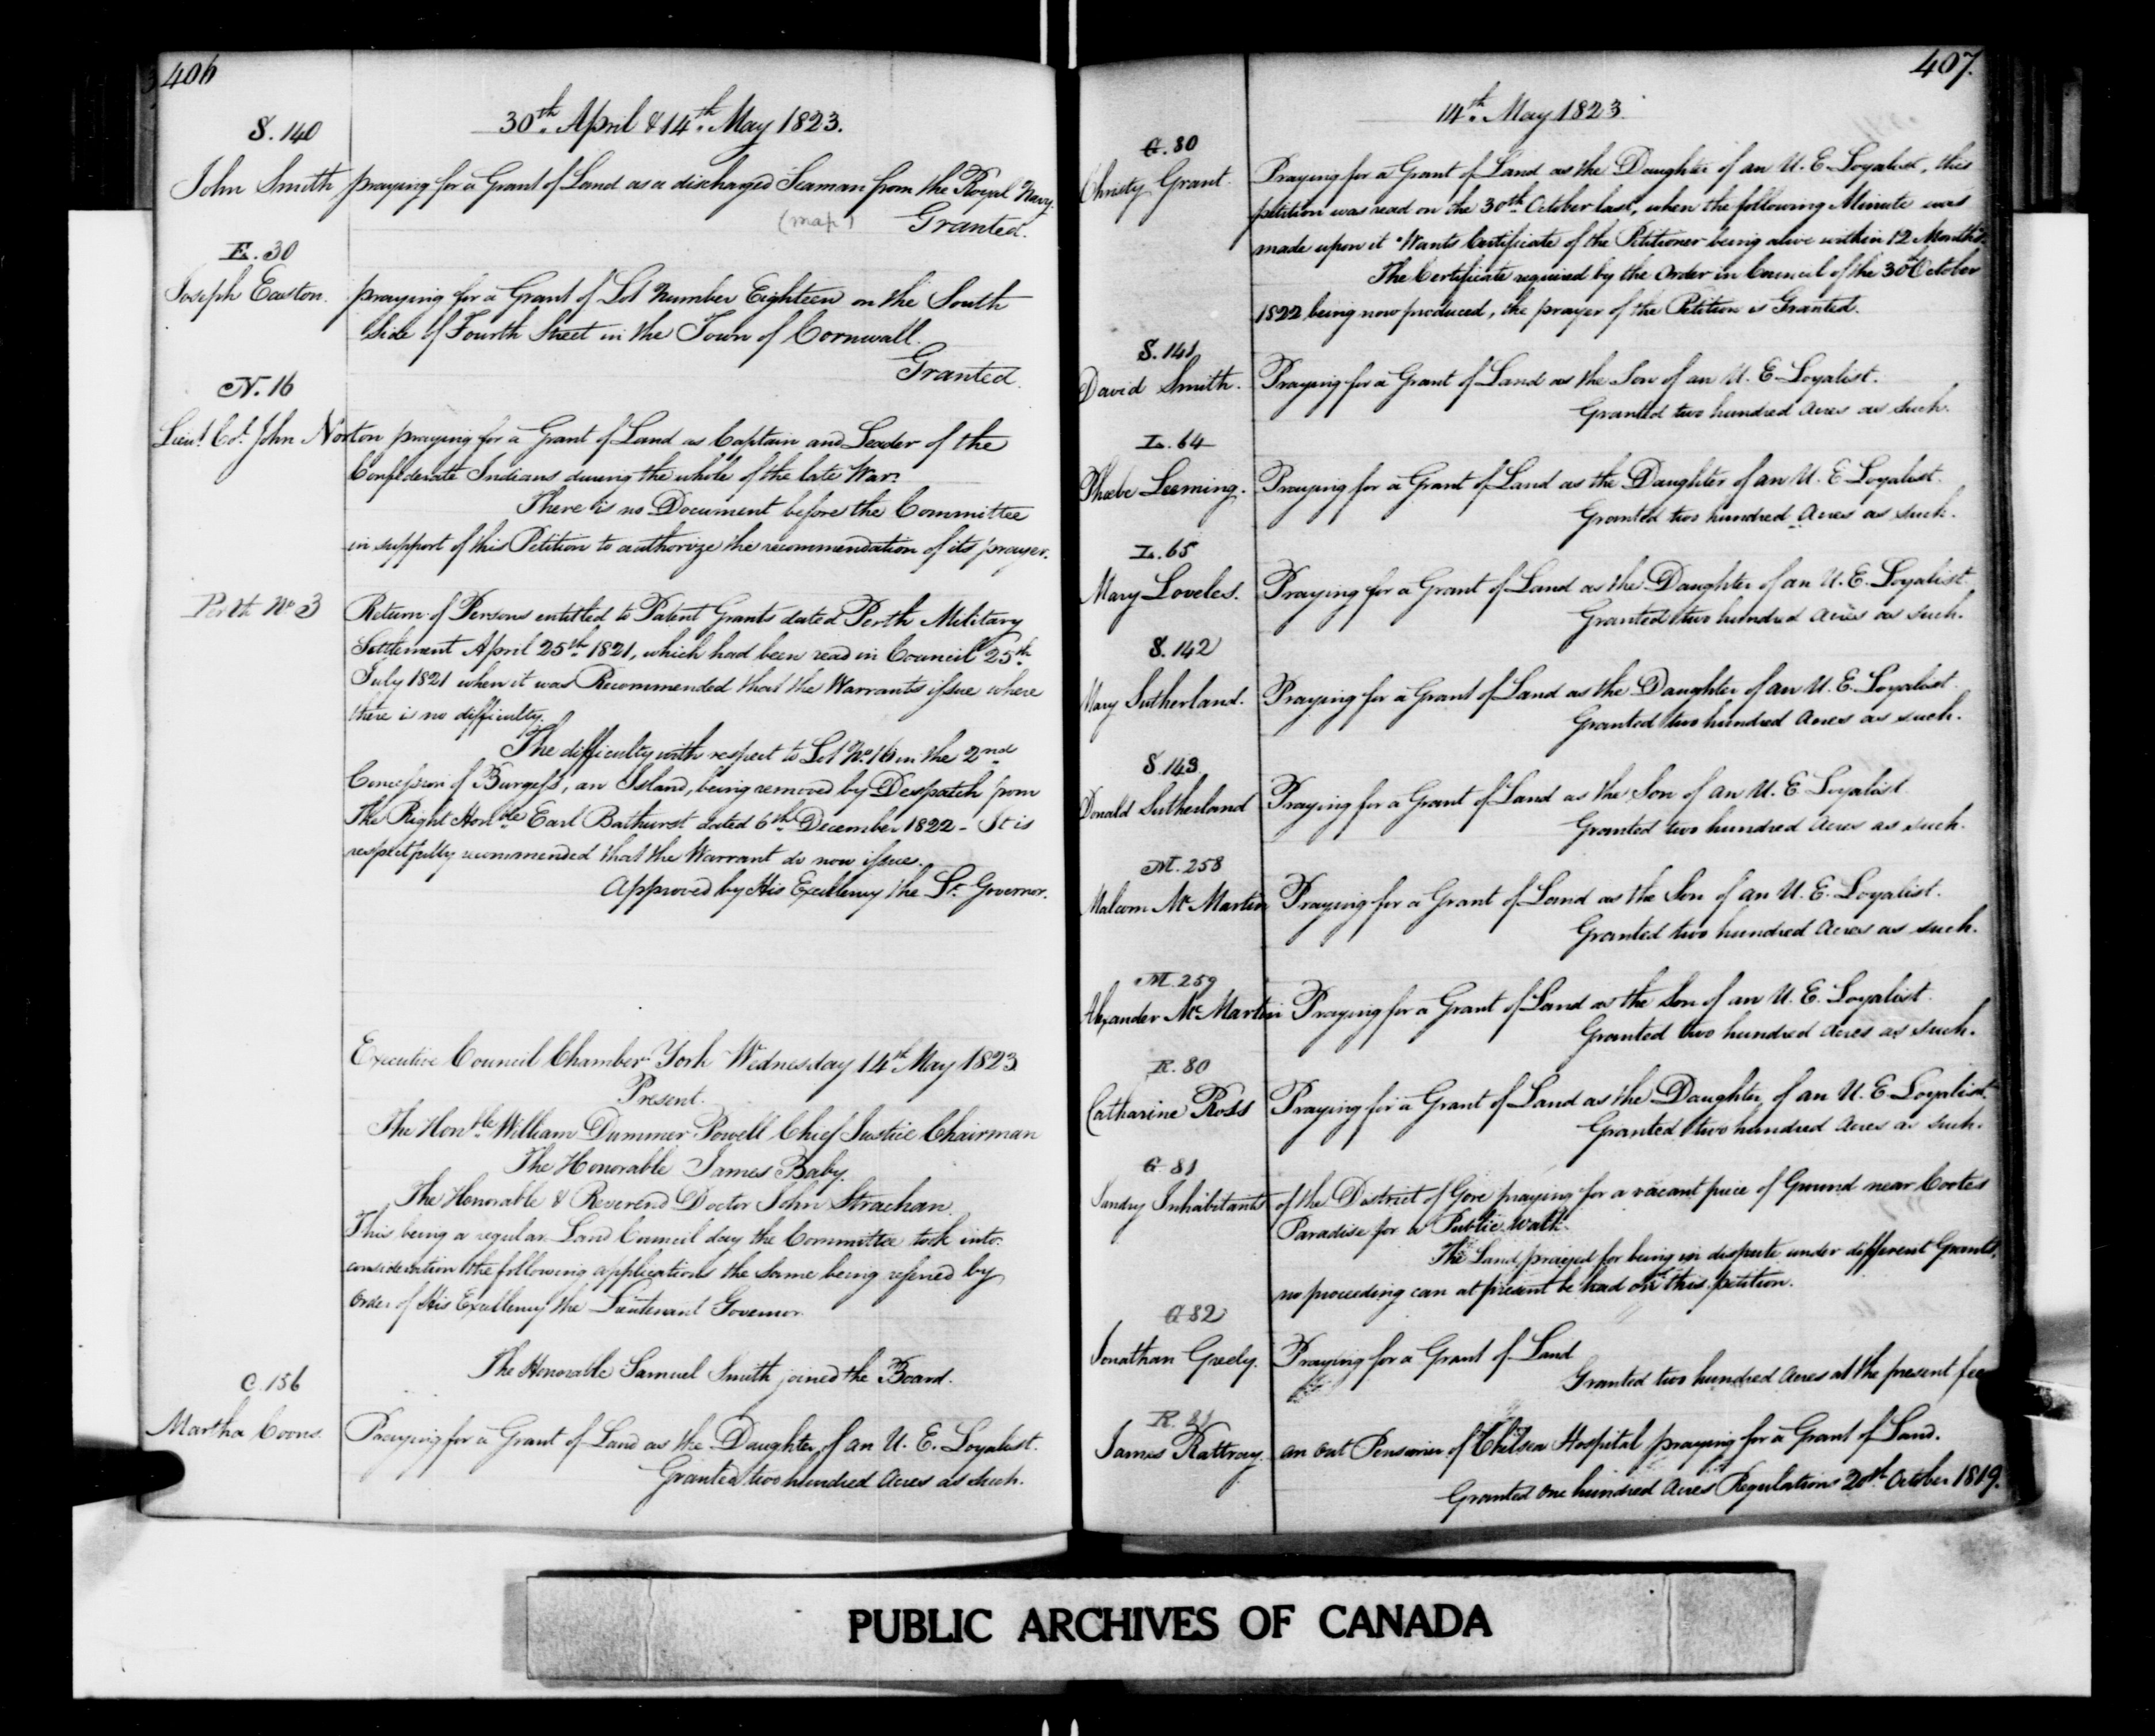 406
30th April & 14th May 1823.
S. 140
John Smith praying for a Grant of Land as a discharged Seaman from the Royal Navy.
(map) Granted.
E. 30
Joseph Easton. praying for a Grant of Lot Number Eighteen on the South
Side of Fourth Street in the Town of Cornwall.
Granted.
N. 16
Lieut. Col. John Norton praying for a Grant of Land as Captain and Leader of the
Confederate Indians during the whole of the late War.
There is no Document before the Committee
in support of this Petition to authorize the recommendation of its prayer.
Perth No 3 Return of Persons entitled to Patent Grants dated Perth Military
Settlement April 25th 1821, which had been read in Council 25th
July 1821 when it was Recommended that the Warrants issue where
there is no difficulty.
The difficulty with respect to Lot No. 16 in the 2nd
Concession of Burgess, an Island, being removed by Despatch from
The Right Honble Earl Bathurst dated 6th December 1822 - It is
respectfully recommended that the Warrant do now issue.
Approved by His Excellency the Lt. Governor.
Executive Council Chamber York Wednesday 14th May 1823
Present.
The Honble William Dummer Powell Chief Justice Chairman
The Honorable James Baby.
The Honorable & Reverend Doctor John Strachan.
This being a regular Land Council day the Committee took into
consideration the following applications the same being referred by
Order of His Excellency the Lieutenant Governor
The Honorable Samuel Smith joined the Board.
C. 156
Martha Coons. Praying for a Grant of Land as the Daughter of an U. E. Loyalist.
Granted two hundred Acres as such.
407.
14th May 1823.
G. 80
Christy Grant. Praying for a Grant of Land as the Daughter of an U. E. Loyalist, this
petition was read on the 30th October last, when the following Minute was
made upon it "Wants Certificate of the Petitioner being alive within 12 Months."
The Certificate required by the Order in Council of the 30th October
1822 being now produced, the prayer of the Petition is Granted.
S. 141
David Smith. Praying for a Grant of Land as the Son of an U. E. Loyalist.
Granted two hundred Acres as such.
L. 64
Phoebe Leeming. Praying for a Grant of Land as the Daughter of an U. E. Loyalist.
Granted two hundred Acres as such.
L. 65
Mary Loveles. Praying for a Grant of Land as the Daughter of an U. E. Loyalist.
Granted two hundred Acres as such.
S. 142
Mary Sutherland. Praying for a Grant of Land as the Daughter of an U. E. Loyalist.
Granted two hundred Acres as such.
S. 143
Donald Sutherland Praying for a Grant of Land as the Son of an U. E. Loyalist.
Granted two hundred Acres as such.
M. 258
Malcom Mc Martin Praying for a Grant of Land as the Son of an U. E. Loyalist.
Granted two hundred Acres as such.
M. 259
Alexander Mc Martin Praying for a Grant of Land as the Son of an U. E. Loyalist.
Granted two hundred Acres as such.
R. 80
Catharine Ross Praying for a Grant of Land as the Daughter of an U. E. Loyalist.
Granted two hundred Acres as such.
G 81
Sundry Inhabitants of the District of Gore praying for a vacant piece of Ground near Cootes
Paradise for a Public walk.
The Land prayed for being in dispute under different Grants,
no proceeding can at present be had on this petition.
G 82
Jonathan Greely. Praying for a Grant of Land
Granted two hundred Acres at the present fee
R. 81
James Rattray. an Out Pensioner of Chelsea Hospital praying for a Grant of Land.
Granted One hundred Acres Regulations 20th October 1819.
PUBLIC ARCHIVES OF CANADA